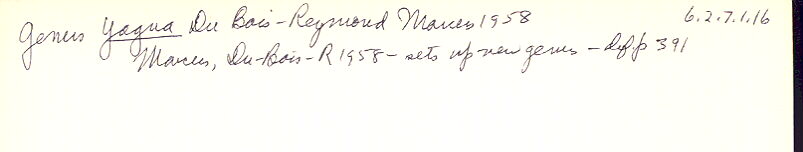 Genus Yagua Du Bois-Reymond Marcus 1958 6.2.7.1.16
Marcus, Du-Bois-R 1958 - sets up new genus - def p 391